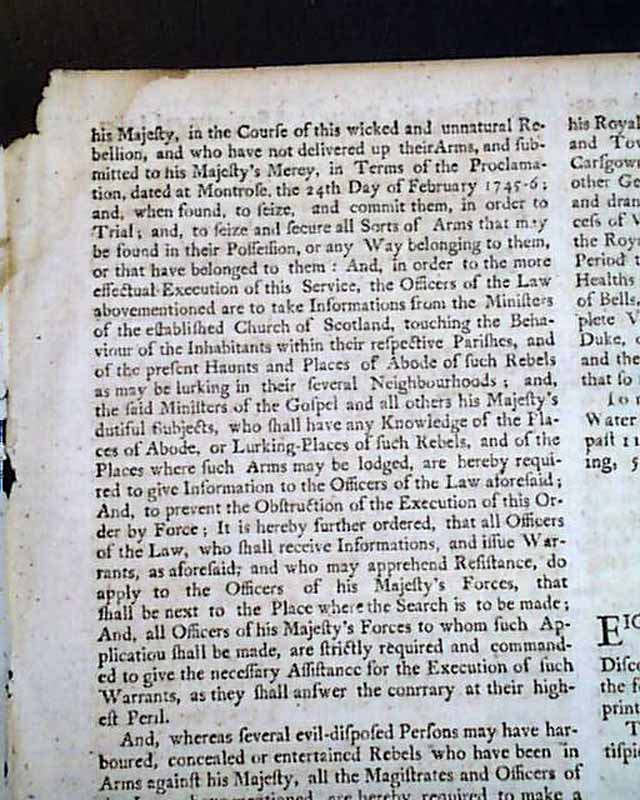 his Majeſty, in the Courſe of this wicked and unnatural Re-
bellion, and who have not delivered up theirArms, and ſub-
mitted to his Majeſty's Mercy, in Terms of the Proclama-
tion, dated at Montroſe, the 24th Day of February 1745-6;
and, when found, to ſeize, and commit them, in order to
Trial; and, to ſeize and ſecure all Sorts of Arms that may
be found in their Poſſeſſion, or any Way belonging to them,
or that have belonged to them: And, in order to the more
effectual Execution of this Service, the Officers of the Law
abovementioned are to take Informations from the Miniſters
of the eſtabliſhed Church of Scotland, touching the Beha-
viour of the Inhabitants within their reſpective Pariſhes, and
of the preſent Haunts and Places of Abode of ſuch Rebels
as may be lurking in their ſeveral Neighbourhoods; and,
the ſaid Miniſters of the Goſpel and all others his Majeſty's
dutiful Subjects, who ſhall have any Knowledge of the Pla-
ces of Abode, or Lurking-Places of ſuch Rebels, and of the
Places where ſuch Arms may be lodged, are hereby requi-
red to give Information to the Officers of the Law aforeſaid;
And, to prevent the Obſtruction of the Execution of this Or-
der by Force; It is hereby further ordered, that all Officers
of the Law, who ſhall receive Informations, and iſſue War-
rants, as aforeſaid; and who may apprehend Reſiſtance, do
apply to the Officers of his Majeſty's Forces, that
ſhall be next to the Place where the Search is to be made;
And, all Officers of his Majeſty's Forces to whom ſuch Ap-
plication ſhall be made, are ſtrictly required and command-
ed to give the neceſſary Aſſiſtance for the Execution of ſuch
Warrants, as they ſhall anſwer the conrrary at their high-
eſt Peril.
And, whereas ſeveral evil-diſpoſed Perſons may have har-
boured, concealed or entertained Rebels who have been in
Arms againſt his Majeſty, all the Magiſtrates and Officers of
mentioned, are hereby required to make a
his Royal
and Tov
Carſgown
other Ge
and dran
ceſs of V
the Roy
Period t
Healths
of Bells
plete V
Duke, 
and the
that ſo
To
Water
paſt 11
ing, 5
EIG
Diſco
the f
print
T
tiſpi